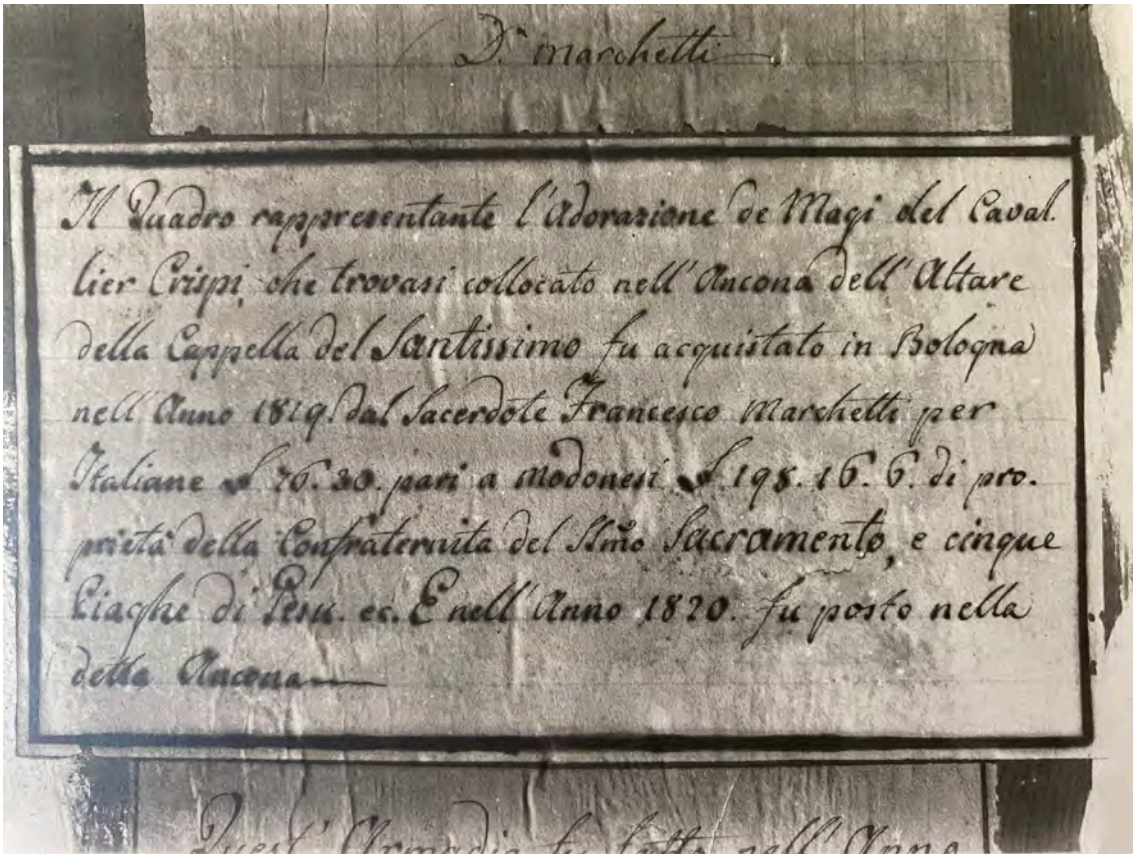 D.n Marchetti
Il Quadro rappresentante l'Adorazione de Magi del Caval.
lier Crispi, che trovasi collocato nell'Ancona dell'Altare
della Cappella del Santissimo fu acquistato in Bologna
nell'Anno 1819. dal Sacerdote Francesco Marchetti per
Italiane £ 76. 30. pari a Modonesi £ 198. 16. 6. di pro.
prietà della Confraternita del SSmo Sacramento, e cinque
Piaghe di Gesu. ec. E nell'Anno 1820. fu posto nella
detta Ancona
Quest'Armadio fu fatto nell'Anno